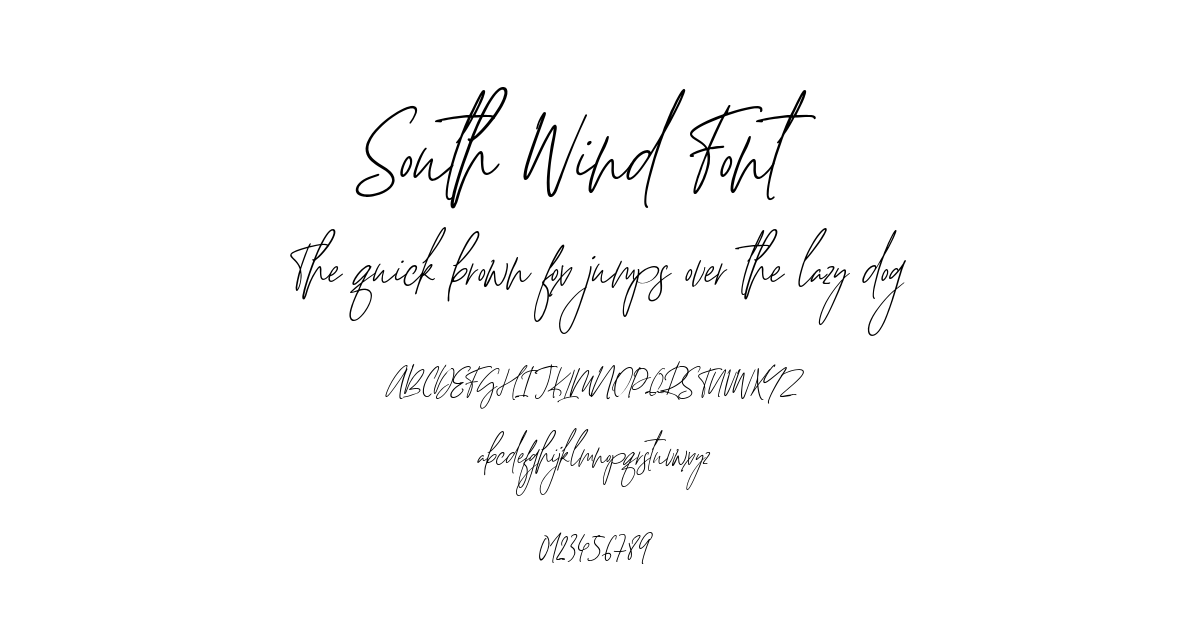 South Wind Font
The quick brown fox jumps over the lazy dog
ABCDEFGHIJKLMNOPQRSTUVWXYZ
abcdefghijklmnopqrstuvwxyz
0123456789